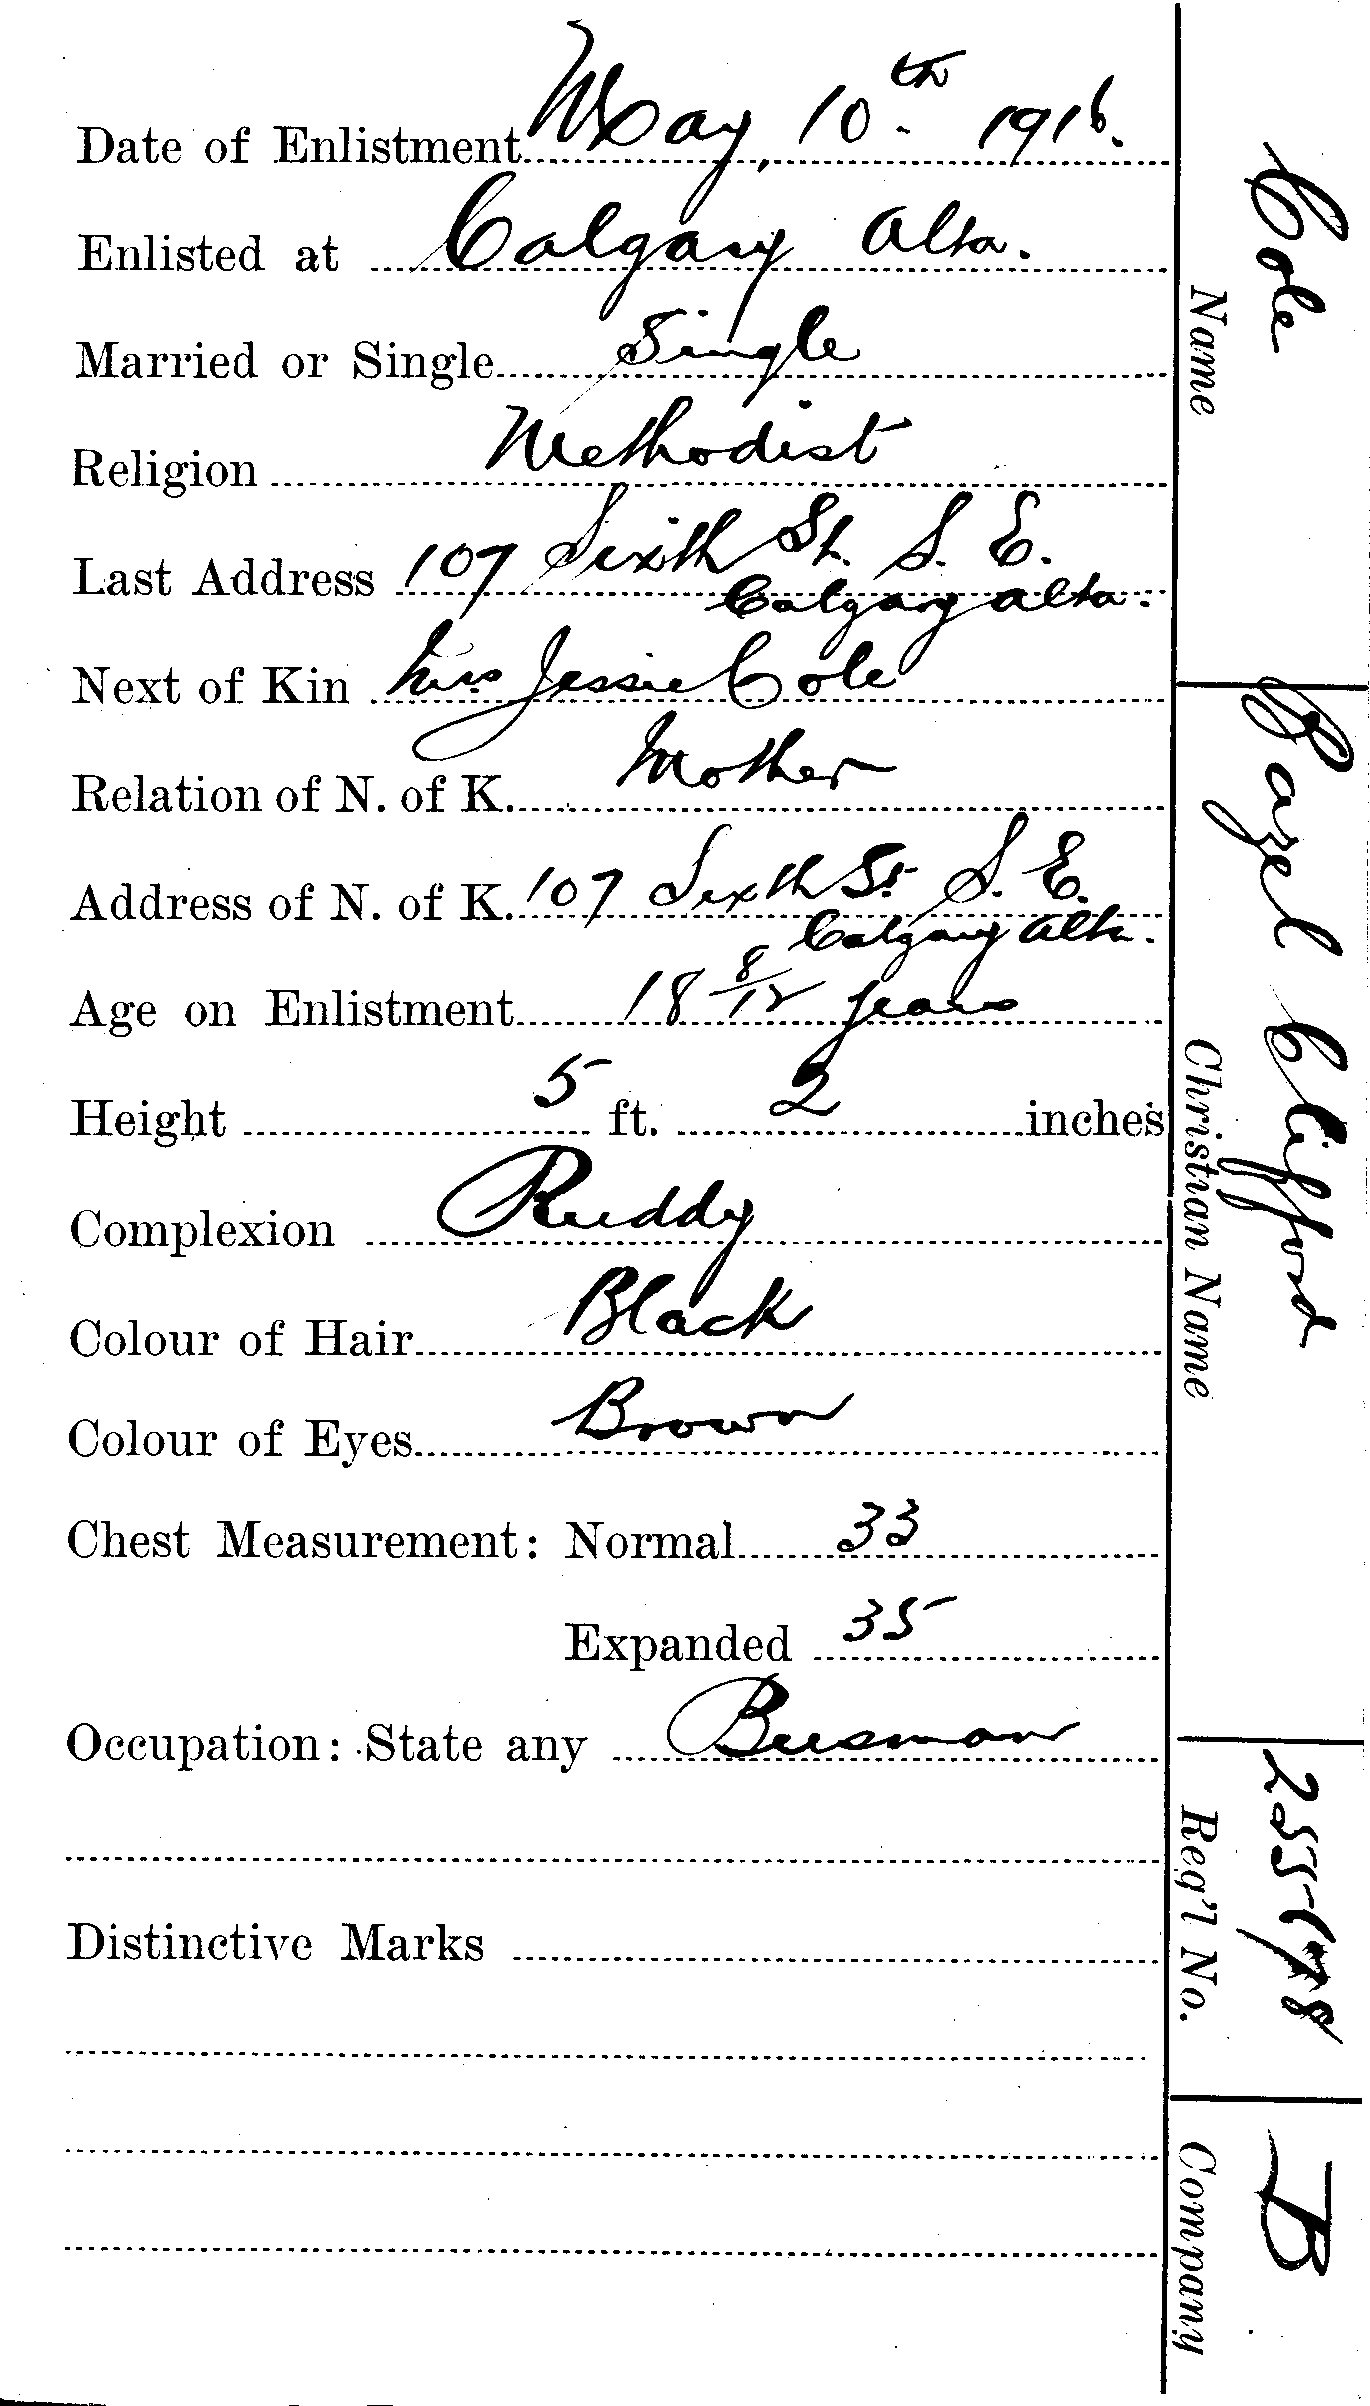 Date of Enlistment May, 10th. 1916.
Enlisted at Calgary Alta.
Married or Single Single
Religion Methodist
Last Address 107 Sixth St. S. E.
Calgary Alta.
Next of Kin Mrs Jessie Cole
Relation of N. of K. Mother
Address of N. of K. 107 Sixth St. S. E.
Calgary Alta.
Age on Enlistment 18 8/12 years
Height 5 ft. 2 inches
Complexion Ruddy
Colour of Hair Black
Colour of Eyes Brown
Chest Measurement: Normal 33
Expanded 35
Occupation: State any Busman
Distinctive Marks
Cole
Name
Bazel Clifford
Christian Name
Reg'l No.
B
Company